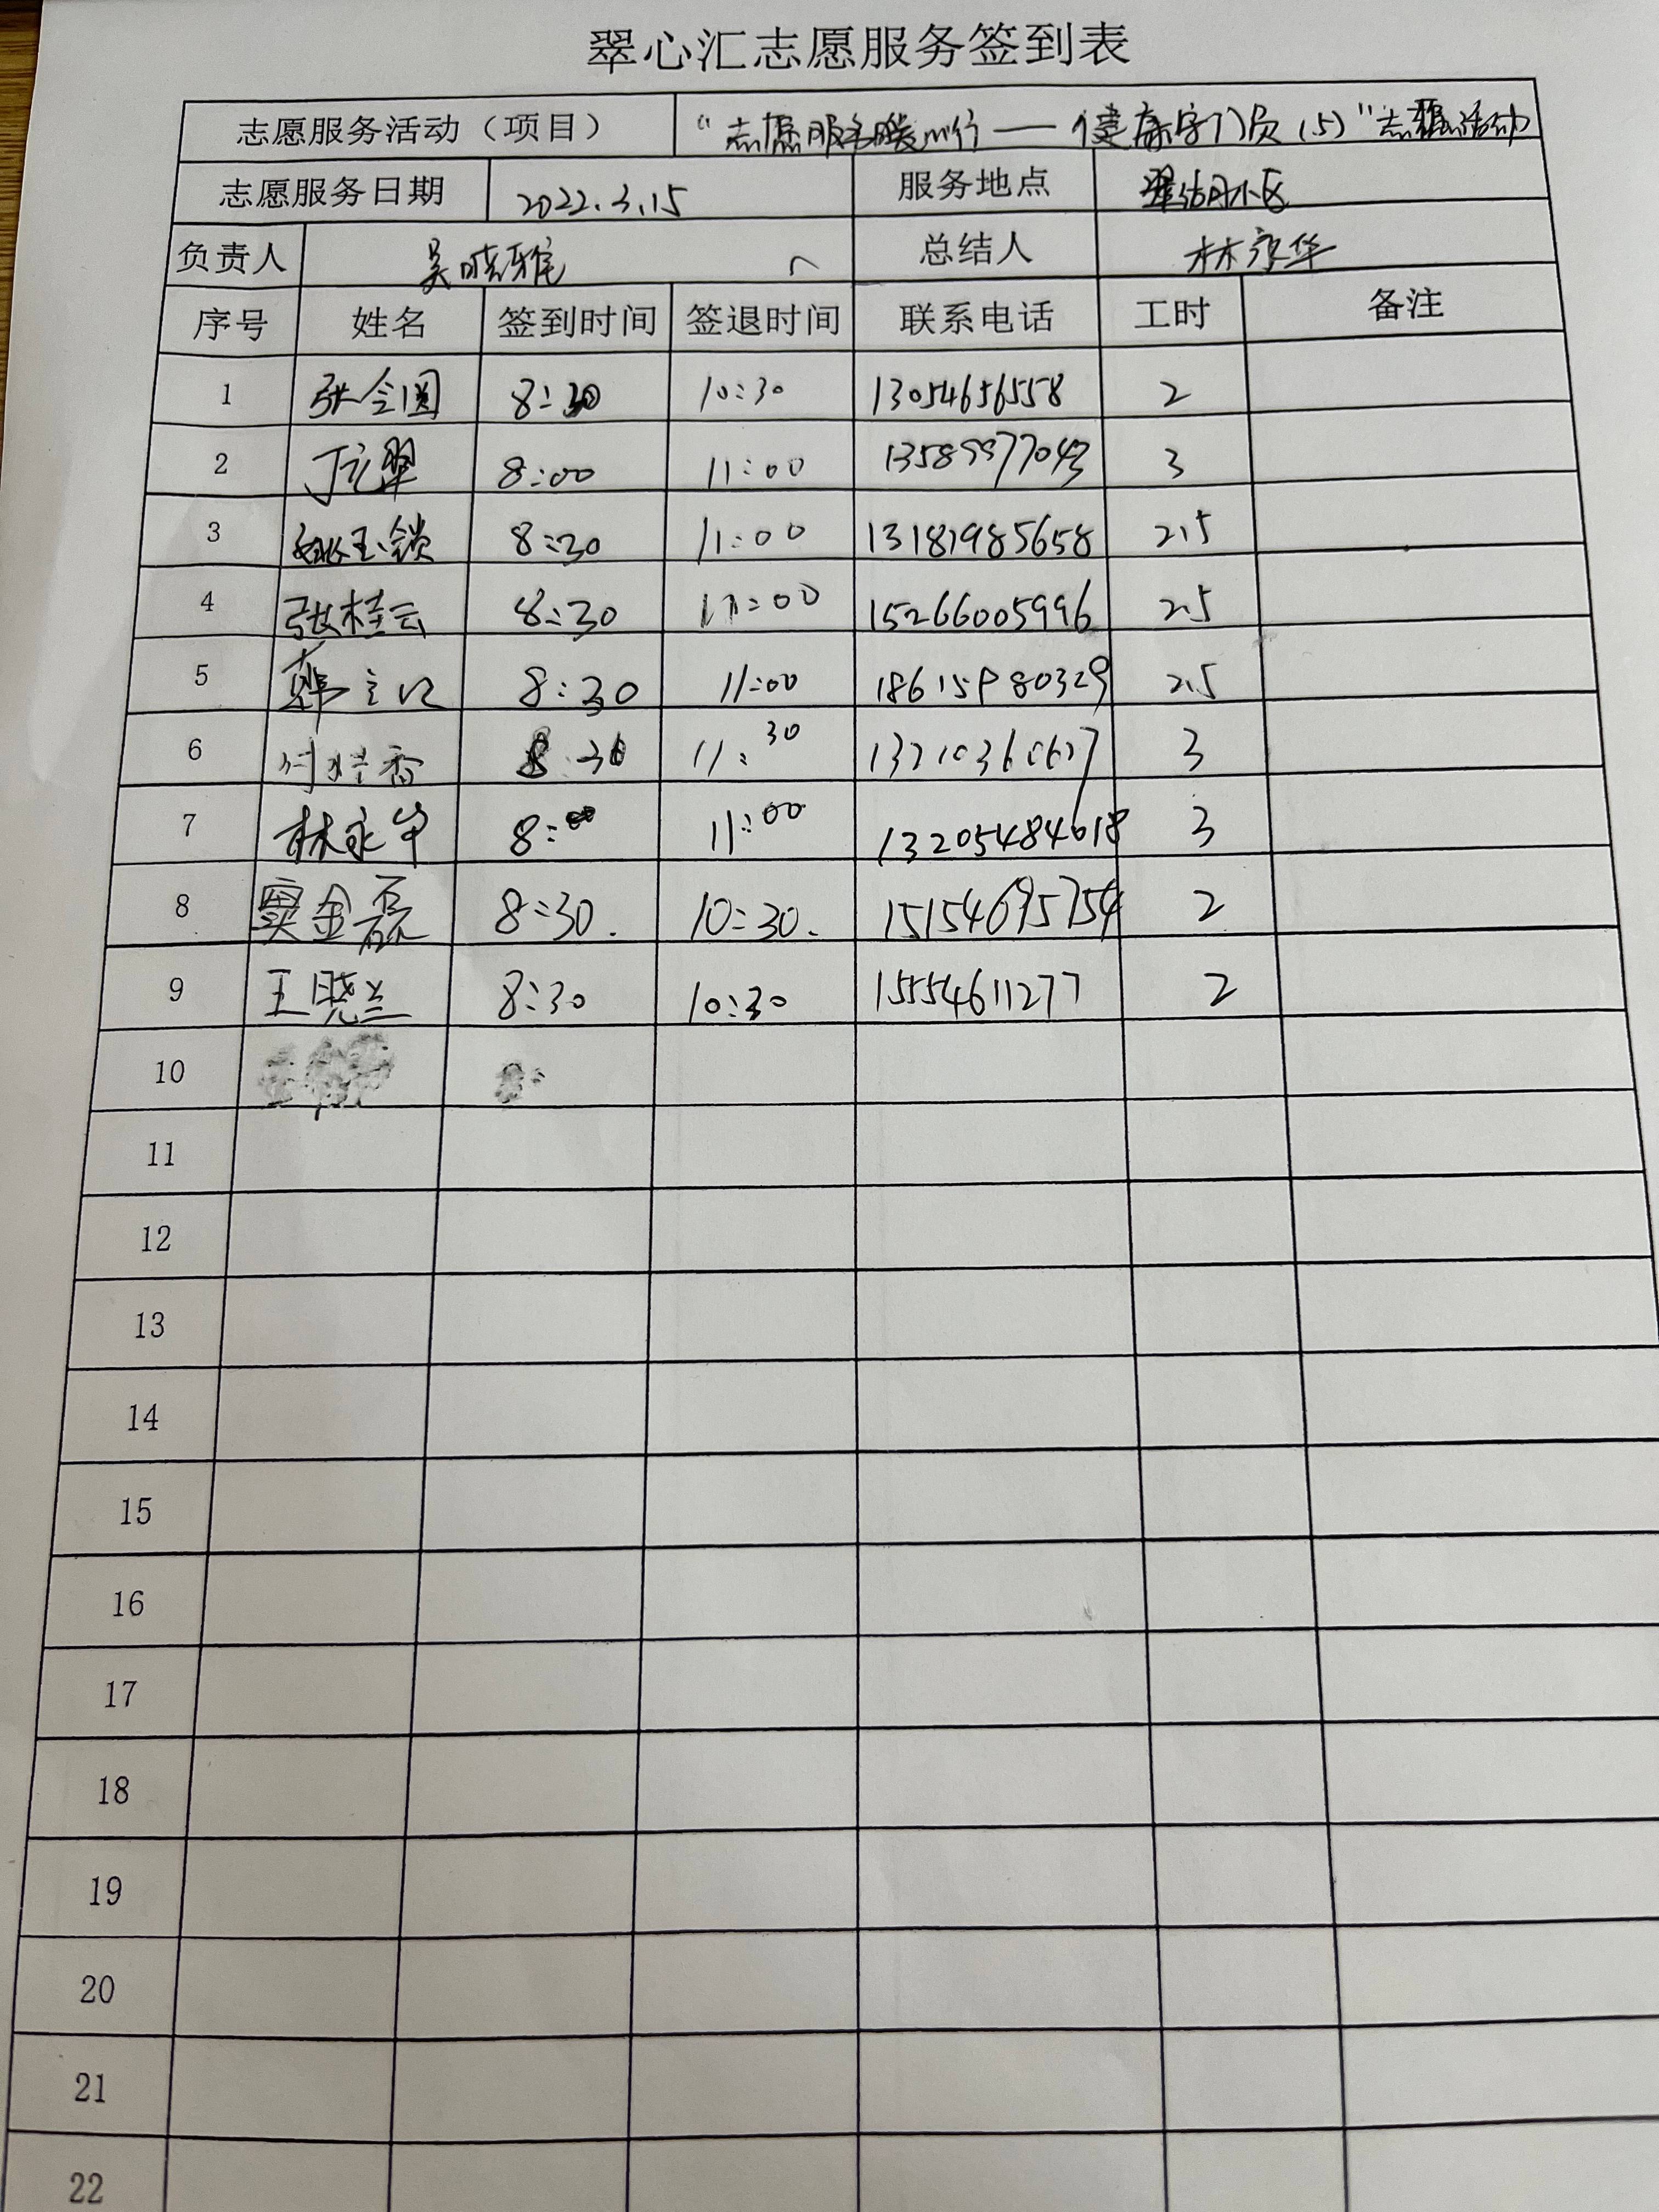 翠心汇志愿服务签到表
志愿服务活动（项目） “志愿服务暖心行——健康守门员（5）”志愿活动
志愿服务日期 2022.3.15 服务地点 小区
负责人 吴晓雅 总结人 林永华
序号 姓名 签到时间 签退时间 联系电话 工时 备注
1 张会圆 8:30 10:30 13054656558 2
2 8:00 11:00 13589977043 3
3 姚玉锁 8:30 11:00 13181985658 2.5
4 张桂云 8:30 11:00 15266005996 2.5
5 8:30 11:00 18615980329 2.5
6 8:30 11:30 3
7 林永华 8:00 11:00 13205484618 3
8 窦金磊 8:30. 10:30. 15154695754 2
9 王晓兰 8:30 10:30 15554611277 2
10
11
12
13
14
15
16
17
18
19
20
21
22